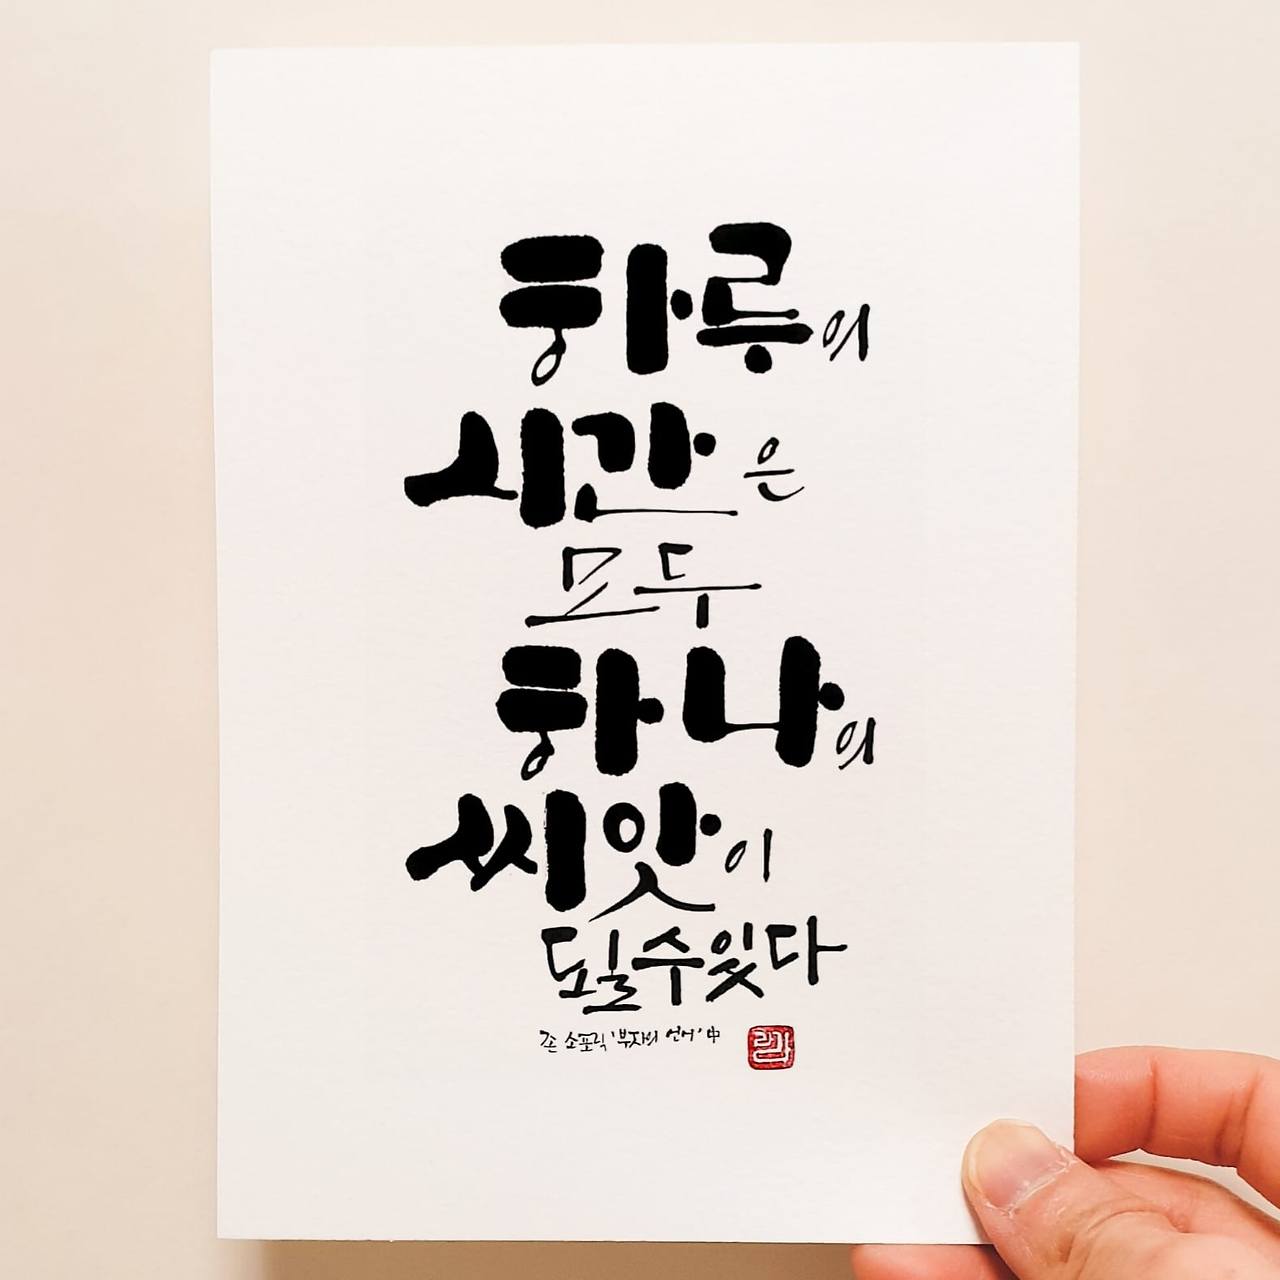 하루의
시간은
모두
하나의
씨앗이
될 수 있다
존 소포릭 '부자의 언어' 中